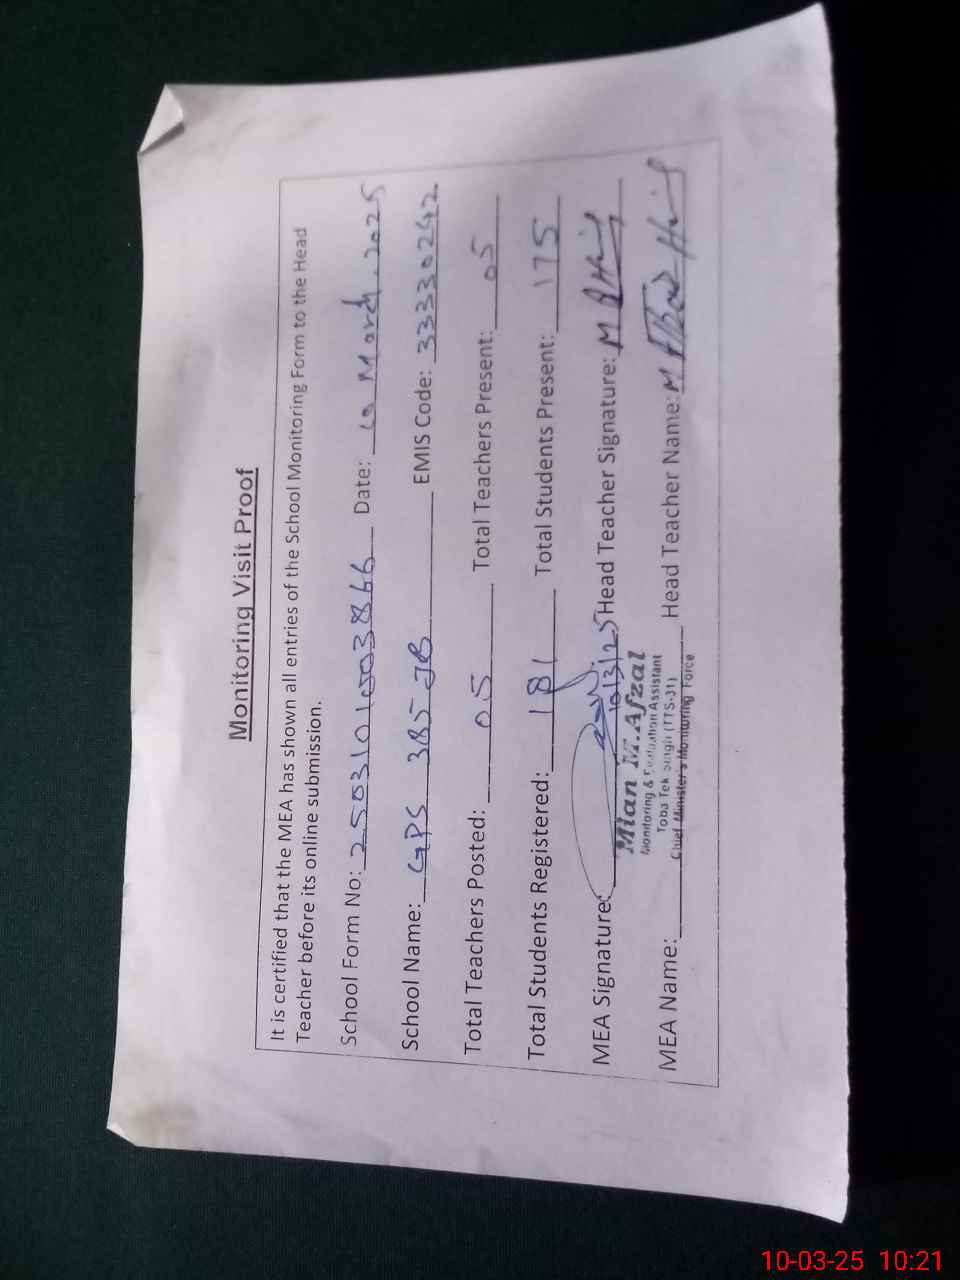 Monitoring Visit Proof
It is certified that the MEA has shown all entries of the School Monitoring Form to the Head
Teacher before its online submission.
School Form No: Date: 10 March, 2025
School Name: GPS 385 JB EMIS Code: 33330242
Total Teachers Posted: 05 Total Teachers Present: 05
Total Students Registered: 181 Total Students Present: 175
MEA Signature: 10/3/25 Head Teacher Signature: M
Mian M.Afzal
Monitoring & Evaluation Assistant
Toba Tek Singh (TTS-31)
Chief Minister's Monitoring Force
MEA Name: Head Teacher Name: M
10-03-25 10:21